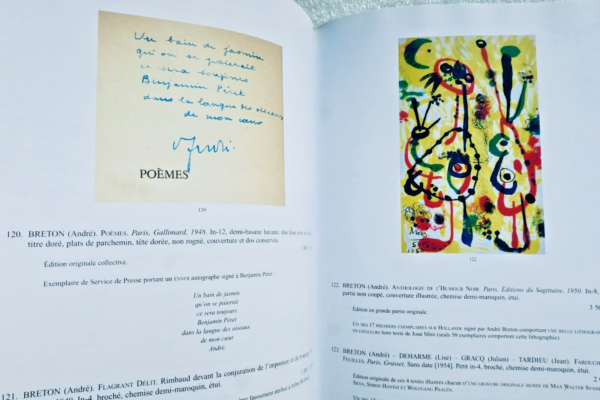 Un bain de jasmin
qu'on se paierait
ce sera toujours
Benjamin Péret
dans la langue des oiseaux
de mon cœur
André.
POÈMES
120
120. BRETON (André). POÈMES. Paris, Gallimard, 1948. In-12, demi-basane havane, dos lisse
titre doré, plats de parchemin, tête dorée, non rogné, couverture et dos conservés.
Édition originale collective.
Exemplaire de Service de Presse portant un ENVOI autographe signé à Benjamin Péret:
Un bain de jasmin
qu'on se paierait
ce sera toujours
Benjamin Péret
dans la langue des oiseaux
de mon cœur
André.
121. BRETON (André). FLAGRANT DÉLIT. Rimbaud devant la conjuration de l'imposture et du
In-4, broché, chemise demi-maroquin, étui.
faussement attribué à Arthur
Miró
122
122. BRETON (André). ANTHOLOGIE DE L'HUMOUR NOIR. Paris, Éditions du Sagittaire, 1950. In-8,
partie non coupé, couverture illustrée, chemise demi-maroquin, étui.
3 50
Édition en grande partie originale.
UN DES 17 PREMIERS EXEMPLAIRES SUR HOLLANDE signé par André Breton comportant UNE BELLE LITHOGRAPHIE
EN COULEURS hors texte de Joan Miró (seuls 50 exemplaires comportent cette lithographie).
123. BRETON (André) – DEHARME (Lise) – GRACQ (Julien) – TARDIEU (Jean). FAROUCHE
FEUILLES. Paris, Grasset. Sans date [1954]. Petit in-4, broché, chemise demi-maroquin, étui.
Édition originale de ces 4 textes illustrés chacun d'UNE GRAVURE ORIGINALE SIGNÉE DE MAX WALTER SVANBERG
SILVA, SIMON HANTAÏ ET WOLFGANG PAALEN.